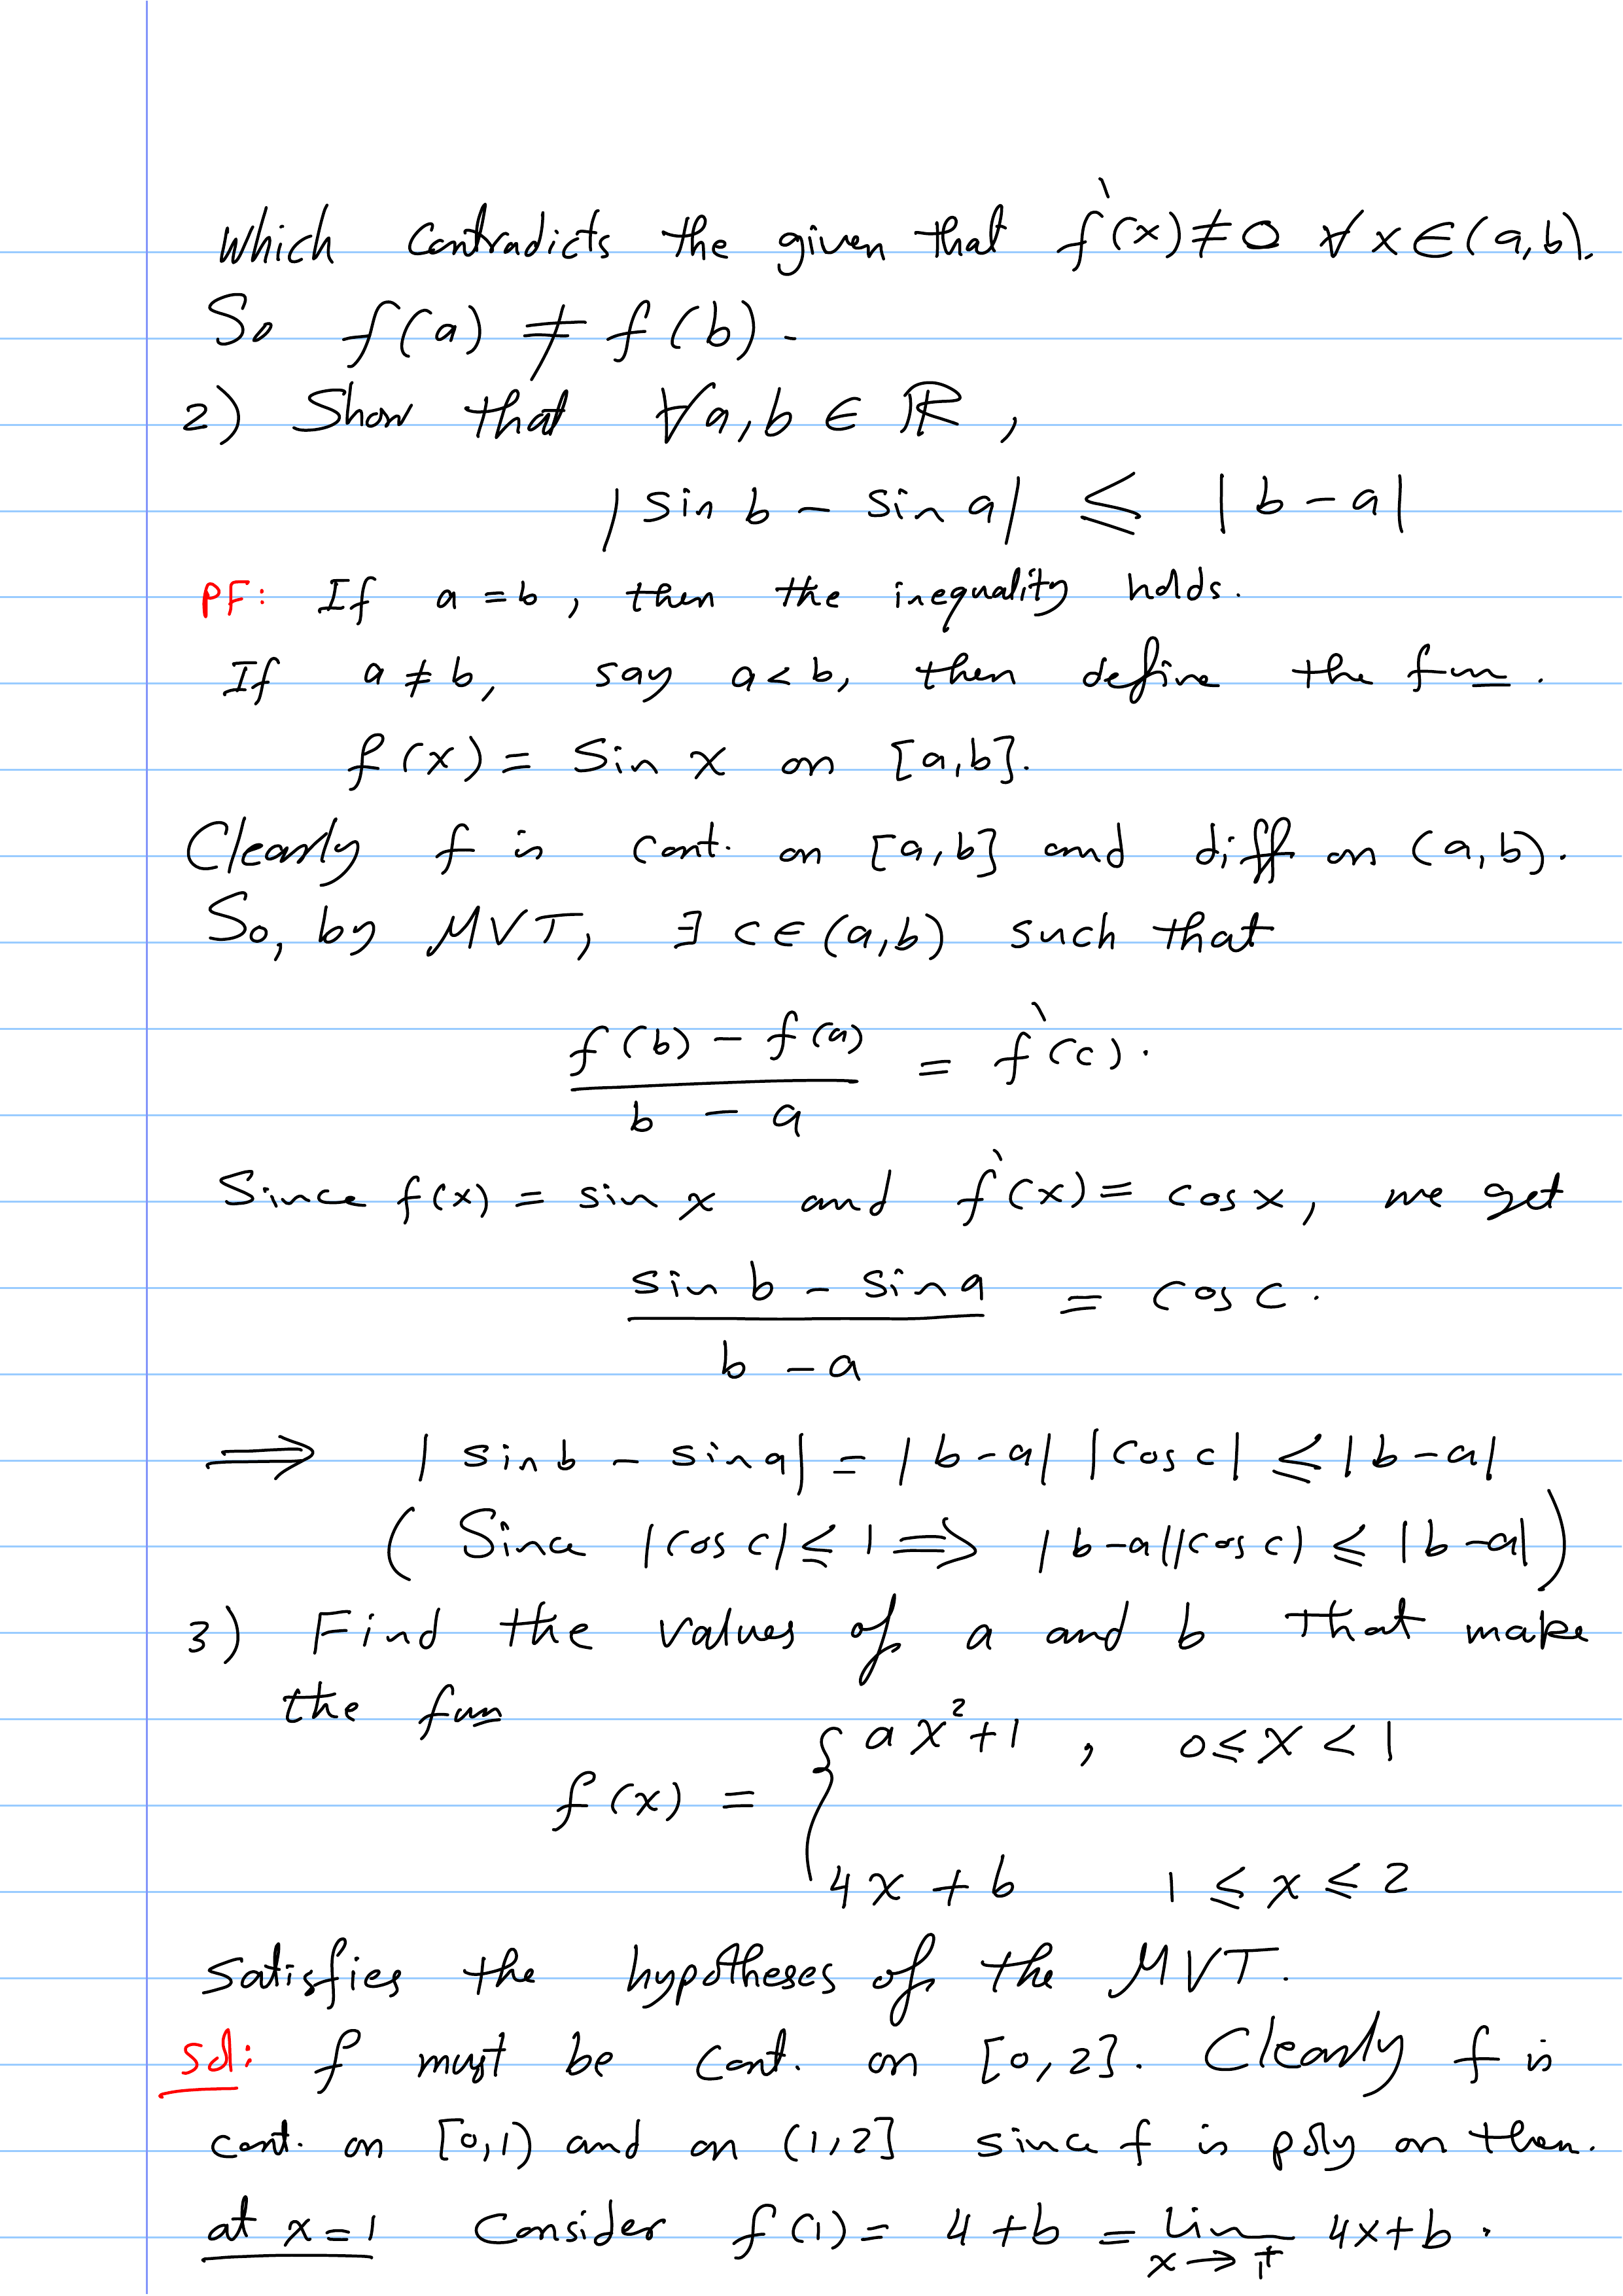 Which contradicts the given that f`(x)≠0 ∀ x∈(a,b).
So f(a) ≠ f(b).
2) Show that ∀a,b ∈ ℝ,
|sin b - sin a| ≤ |b-a|
PF: If a=b, then the inequality holds.
If a≠b, say a<b, then define the fun.
f(x) = Sin x on [a,b].
Clearly f is cont. on [a,b] and diff on (a,b).
So, by MVT, ∃ c∈(a,b) such that
(f(b) - f(a))/(b - a) = f`(c).
Since f(x) = sin x and f`(x) = cos x, we get
(sin b - sin a)/(b - a) = cos c.
⟹ |sin b - sin a| = |b-a| |cos c| ≤ |b-a|
(Since |cos c| ≤ 1 ⟹ |b-a||cos c| ≤ |b-a|)
3) Find the values of a and b that make
the fun
f(x) = { ax²+1 , 0≤x<1
4x+b 1≤x≤2
satisfies the hypotheses of the MVT.
sol: f must be cont. on [0,2]. Clearly f is
cont. on [0,1) and on (1,2] since f is poly on then.
at x=1 Consider f(1) = 4+b = lim x→1⁺ 4x+b.